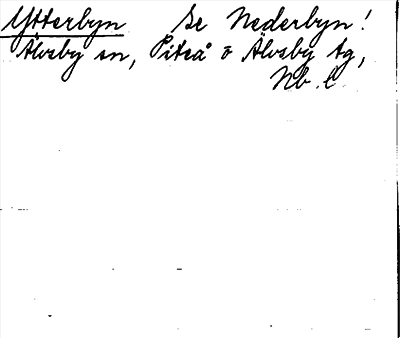 Ytterbyn Se Nederbyn!
Älvsby sn, Piteå o Älvsby tg,
Nb. l.